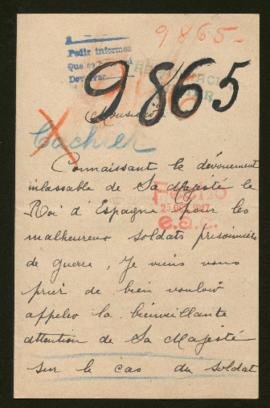 9865-
A
Pedir informes
Que se
Devolver
9865
Monsieur
Cachier
Connaissant le dévouement
inlassable de Sa Majesté le
Roi d'Espagne pour les
malheureux soldats prisonniers
de guerre, Je viens vous
prier de bien vouloir
appeler la bienveillante
attention de Sa Majesté
sur le cas du soldat